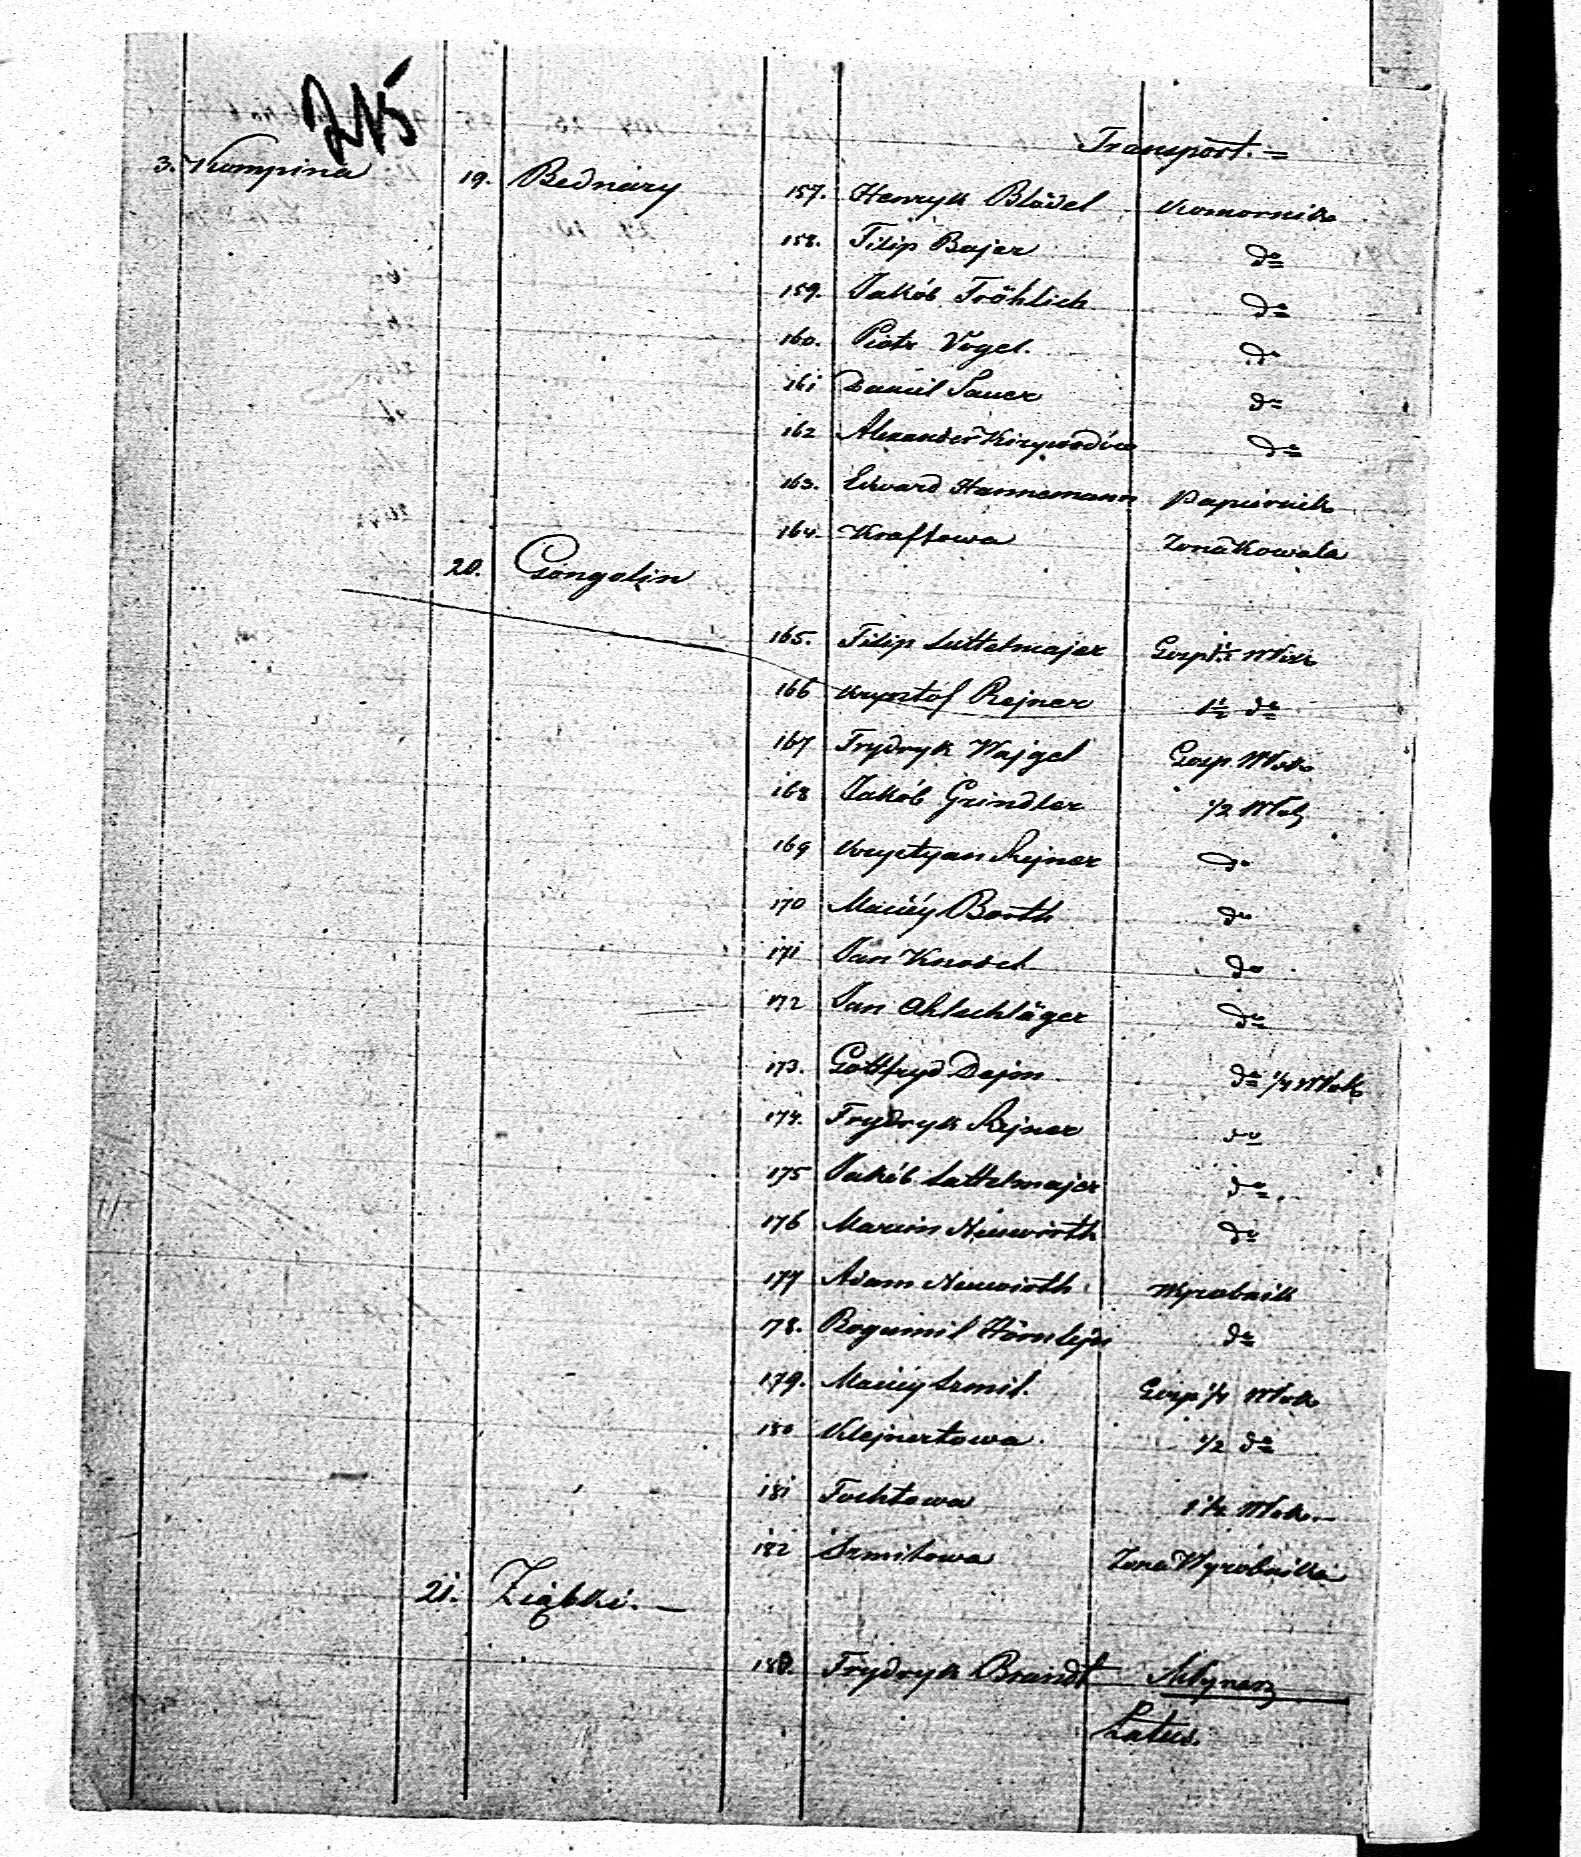 Transport. =
3. Kompina 19. Bednary 157. Henryk Blödel Komornik
158. Filip Bajer do
159. Jakób Fröhlich do
160. Piotr Vogel. do
161 Daniel Sauer do
162 Alexander do
163. Edward Hannemann papiernik
164. Kraftowa Żona Kowala
20. Gongolin
165. Filip Luttelmajer Gosp 1 1/2 Włók
166 Krysztof Rejner 1 1/2 do
167 Frydryk Wajgel Gosp. Włók
168 Jakób Grindler 1/2 Włók
169 Krystyan Rejner do
170 Maciéy Barth do
171 Jan Knodel do
172 Jan Ohlschläger do
173. Gottfryd Dejon do 1/4 Włók
174. Frydryk Rejner do
175 Jakób Luttelmajer do
176 Marcin Neuwirth do
177 Adam Neuwirth Wyrobnik
178. Bogumil do
179. Maciéy Szmit. Gosp 1/4 Włók
180 Klejnertowa 1/2 do
181 Fochtowa 1 1/2 Włók
182 Szmitowa Żona Wyrobnika
21. Ziąbki. —
183. Frydryk Brandt Młynarz
Latus.